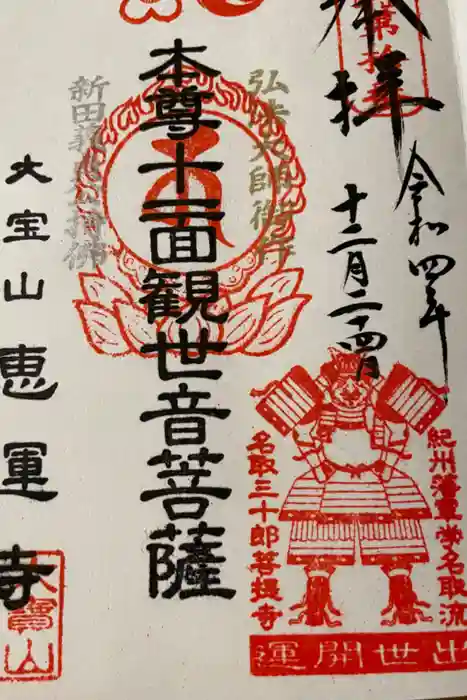 奉拝
令和四年
十二月二十四日
弘法大師御作
本尊十一面観世音菩薩
新田義貞公持佛
大宝山恵運寺
大寶山
紀州藩軍学名取流
名取三十郎菩提寺
出世開運